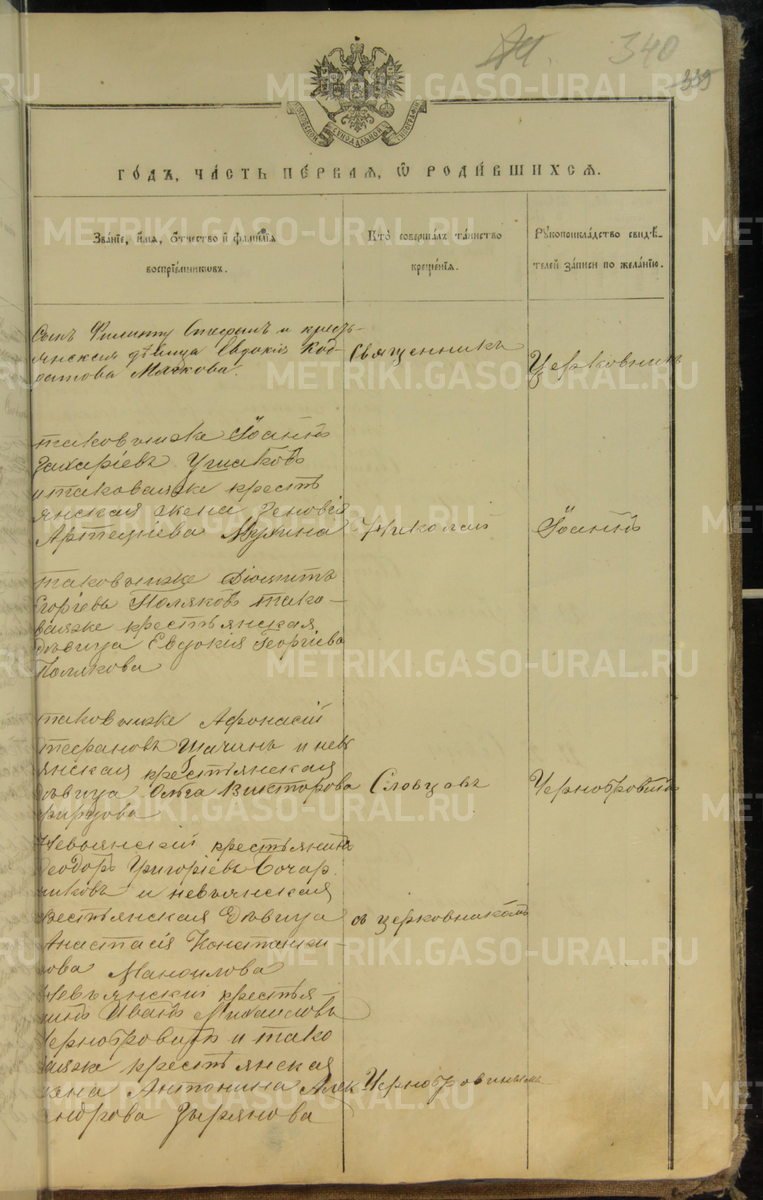 340
339
СѴНОДАЛЬНОЙ
ГО́ДЪ, ЧА́СТЬ ПЕ́РВАЯ, Ѡ҆ РОДИ́ВШИХСЯ.
Зва́нїе, и҆́мя, ѻ҆́тчество и҆ фами́лїя
воспрїе́мникѡвъ.
Кто̀ соверша́лъ та́инство
креще́нїѧ.
Рꙋкоприкла́дство свидѣ́-
телей за́писи по жела́нїю.
сынъ Филиппъ и кресть-
янская дѣвица Евдокія Код-
ратова Мячкова.
Священникъ
Церковникъ
таковыйже Іоаннъ
Захаріевъ Ушаковъ
и таковаяже кресть
янская жена Зеновія
Артеміева Мухина
Николай
Іоаннъ
таковыйже
Егоріевъ Поляковъ тако-
ваяже крестьянская
дѣвица Евдокія Георгіева
Полякова
таковыйже Афонасій
Стефановъ и невь
янская крестьянская
дѣвица Ольга Викторова
Словцовъ
Чернобровинъ
Невьянскій крестьянинъ
Ѳеодоръ Григоріевъ
и невьянская
крестьянская дѣвица
съ церковникомъ
Анастасія Константи-
нова Маноилова
Невьянскій крестья-
нинъ Иванъ Михаиловъ
Чернобровинъ и тако
ваяже крестьянская
жена Антонина Алек
Чернобровинымъ
сандрова Зырянова
METRIKI.GASO-URAL.RU